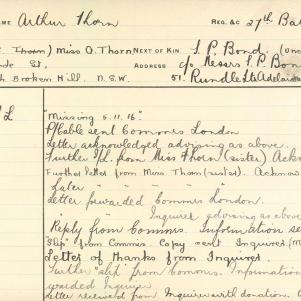 AME Arthur Thorn REG. &C 27th Ba
Thorn) Miss O. Thorn NEXT OF KIN S. P. Bond. (Unc
St, ADDRESS c/o Messrs S. P. Bon
h Broken Hill. N.S.W 51. Rundle St. Adelaid
"Missing 5.11.16"
P/Cable sent Commrs London
Letter acknowledged advising as above.
Further I/L from Miss Thorn (sister) Ackn
Further letter from Miss Thorn (sister). Acknow
Later " " "
Letter forwarded Commrs London.
" Inquirer advising as above
Reply from Commrs. Information se
"Slip" from Commrs. Copy sent Inquirer (M
Letter of thanks from Inquirer.
Further "slip" from Commrs. Information
warded Inquirer
Letter received from Inquirer with donation.